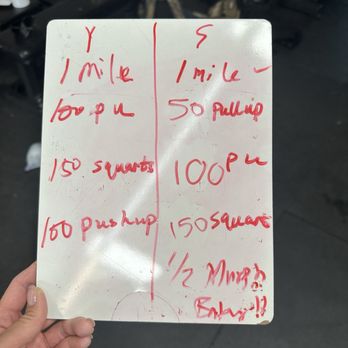 Y
1 Mile
100 pu
150 squats
100 pushup
S
1 mile
50 pullup
100 PU
150 squat
1/2 Murph
Baby!!